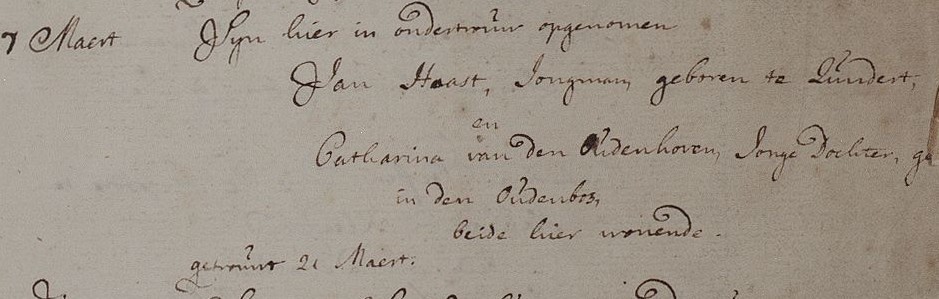 7 Maert Syn hier in ondertrouw opgenomen
Jan Haast, Jongman, geboren te Zundert,
en
Catharina van den Oudenhoven, Jonge Dochter, ge
in den Oudenbos,
beide hier wonende.
getrouwt 21 Maert.